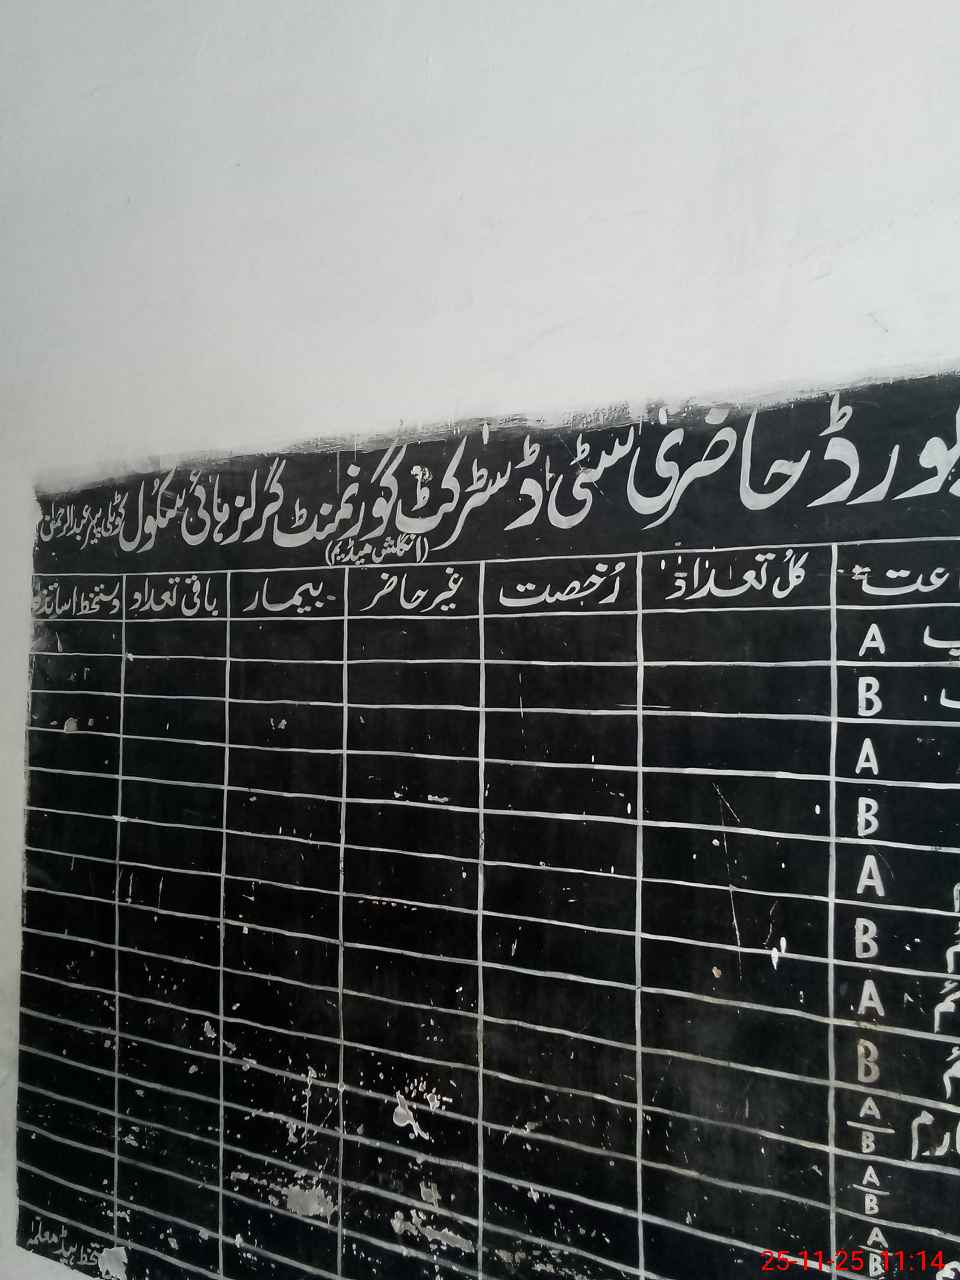 بورڈ حاضری سٹی ڈسٹرکٹ گورنمنٹ گرلز ہائی سکول کوٹلی پیر عبدالرحمٰن
(انگلش میڈیم)
کل تعداد رُخصت غیر حاضر بیمار باقی تعداد دستخط اساتذہ
A
B
A
B
A
B
A
B
A/B
A/B
A/B
دستخط ہیڈ معلمہ
25-11-25 11:14